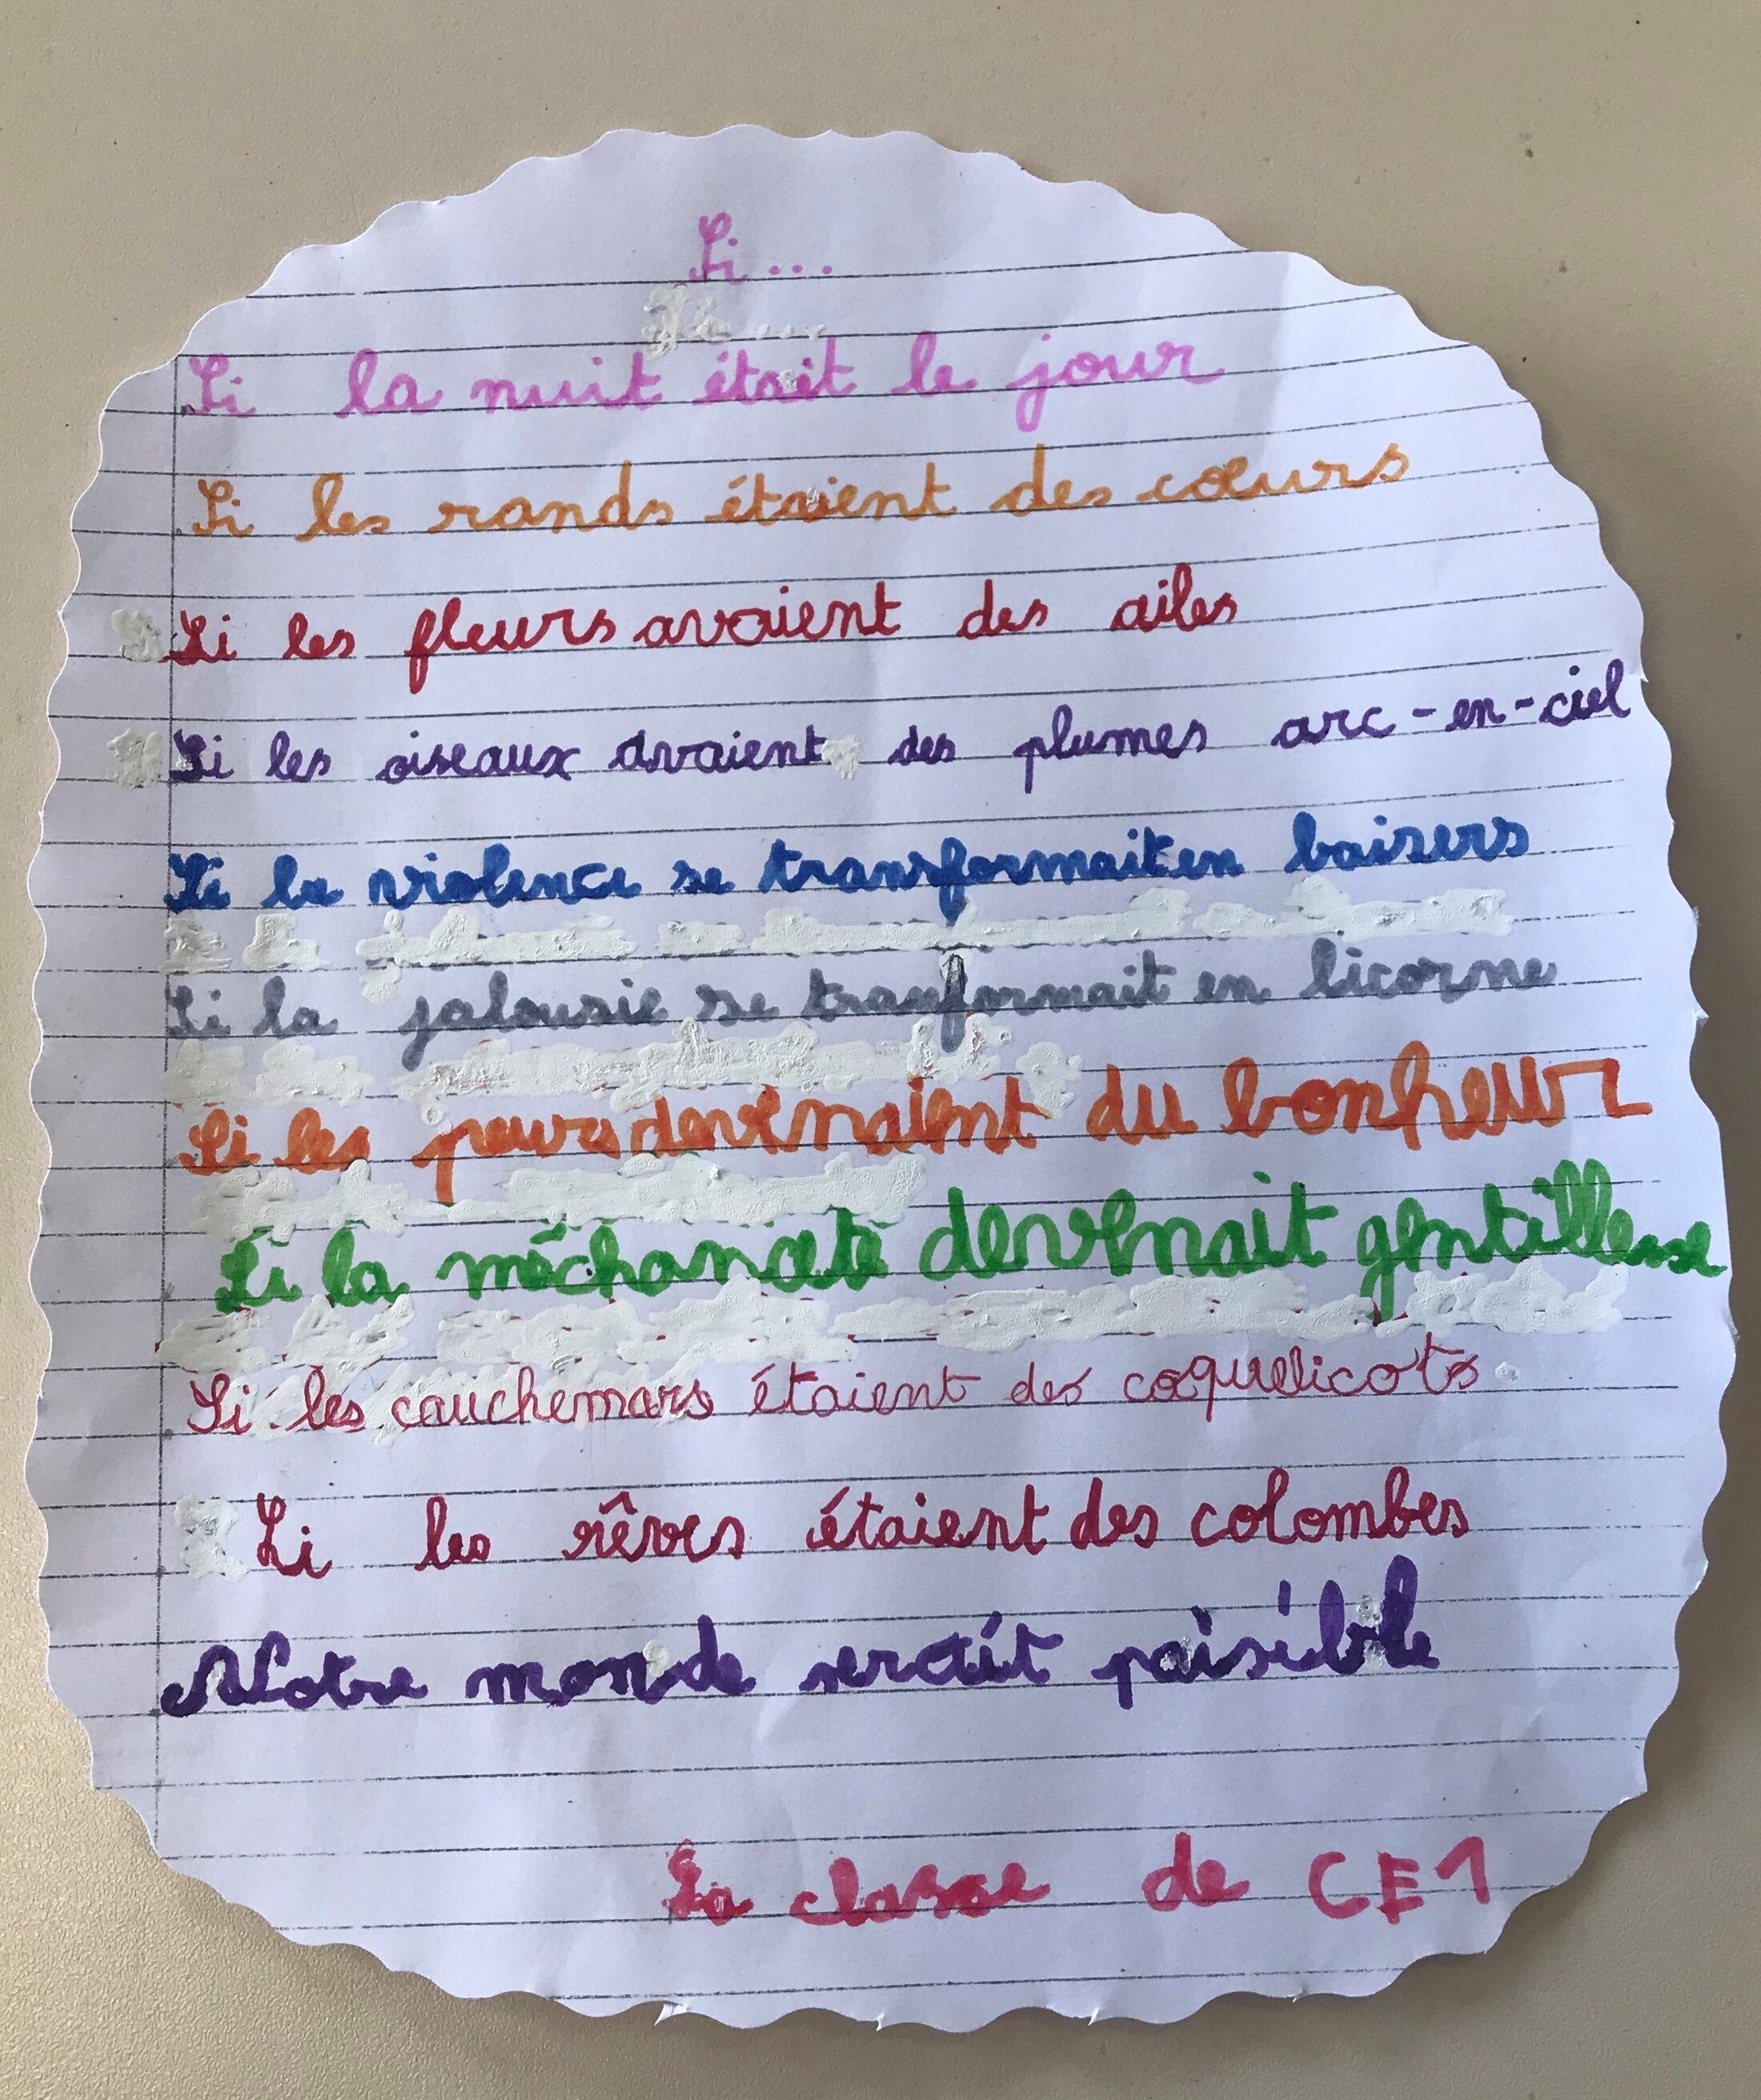 Si ...
Si la nuit était le jour
Si les ronds étaient des cœurs
Si les fleurs avaient des ailes
Si les oiseaux avaient des plumes arc-en-ciel
Si la violence se transformait en baisers
Si la jalousie se tranformait en licorne
Si les peurs devenaient du bonheur
Si la méchanceté devenait gentillesse
Si les cauchemars étaient des coquelicots
Si les rêves étaient des colombes
Notre monde serait paisible
La classe de CE1